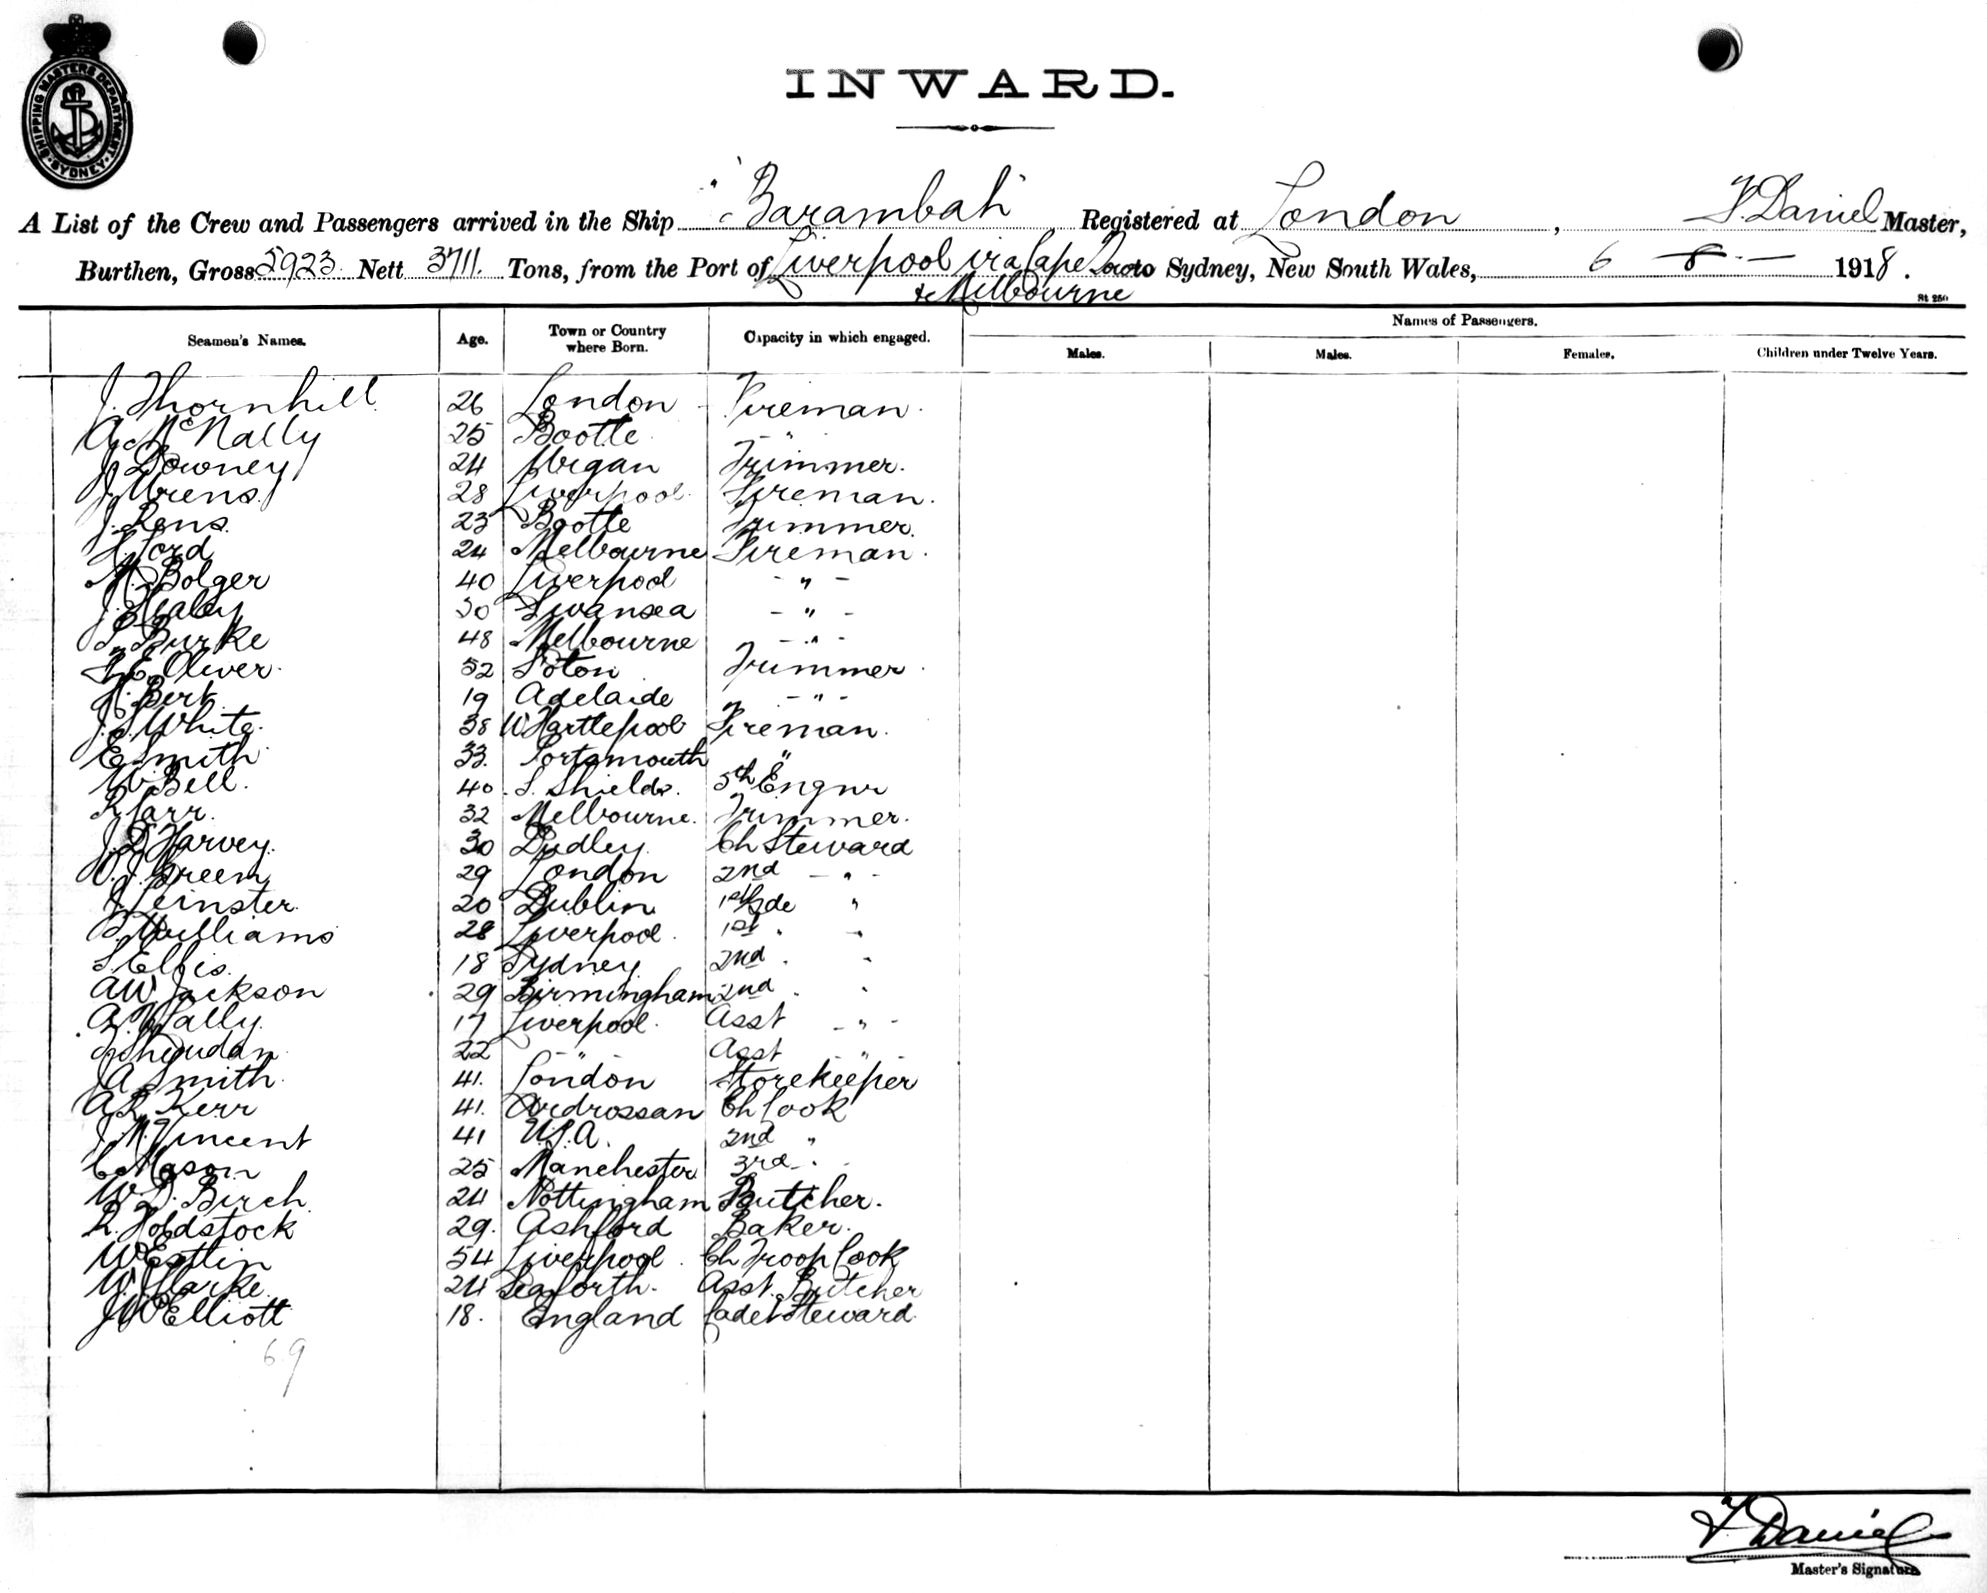 SHIPPING MASTERS DEPARTMENT SYDNEY
INWARD.
A List of the Crew and Passengers arrived in the Ship "Barambah" Registered at London, F. Daniel Master,
Burthen, Gross 5923 Nett 3711. Tons, from the Port of Liverpool via Cape Town to Sydney, New South Wales, 6 - 8 - 1918.
& Melbourne
St 250
Seamen's Names. Age. Town or Country where Born. Capacity in which engaged. Names of Passengers.
Males. Males. Females. Children under Twelve Years.
J. Thornhill 26 London Fireman.
A. McNally 25 Bootle - " -
J. Downey 24 Wigan Trimmer.
J. Arens 28 Liverpool. Fireman.
J. Rens. 23 Bootle Trimmer.
Ford 24 Melbourne Fireman.
M. Bolger 40 Liverpool - " -
J. Healey 30 Swansea - " -
T. Burke 48 Melbourne - " -
E. Oliver. 52 Soton Trimmer.
H. Bert. 19 Adelaide - " -
J. S. White. 38 W Hartlepool Fireman.
E Smith 33. Portsmouth "
W. Bell. 40. S. Shields. 5th Engnr
R Carr. 32 Melbourne. Trimmer.
J. D Harvey. 30 Dudley. Ch Steward
J. Green 29 London 2nd - " -
J Leinster. 20 Dublin. "
T. Williams 28 Liverpool. 1st " "
S Ellis. 18 Sydney 2nd " "
A W Jackson 29 Birmingham 2nd " "
Wally. 17 Liverpool. Asst - " -
Sheridan 22 - " - Asst - " -
J A Smith. 41. London Storekeeper
A R Kerr 41. Ardrossan Ch Cook
J. M. Vincent 41 U.S.A. 2nd "
C. Mason 25 Manchester 3rd - " -
W. D. Birch. 24 Nottingham Butcher.
R. Holdstock 29. Ashford Baker.
W Eattin 54 Liverpool. Ch Troop Cook
W. Clarke. 24 Seaforth. Asst. Butcher
J W Elliott 18. England Cadet Steward.
69
F Daniel
Master's Signature